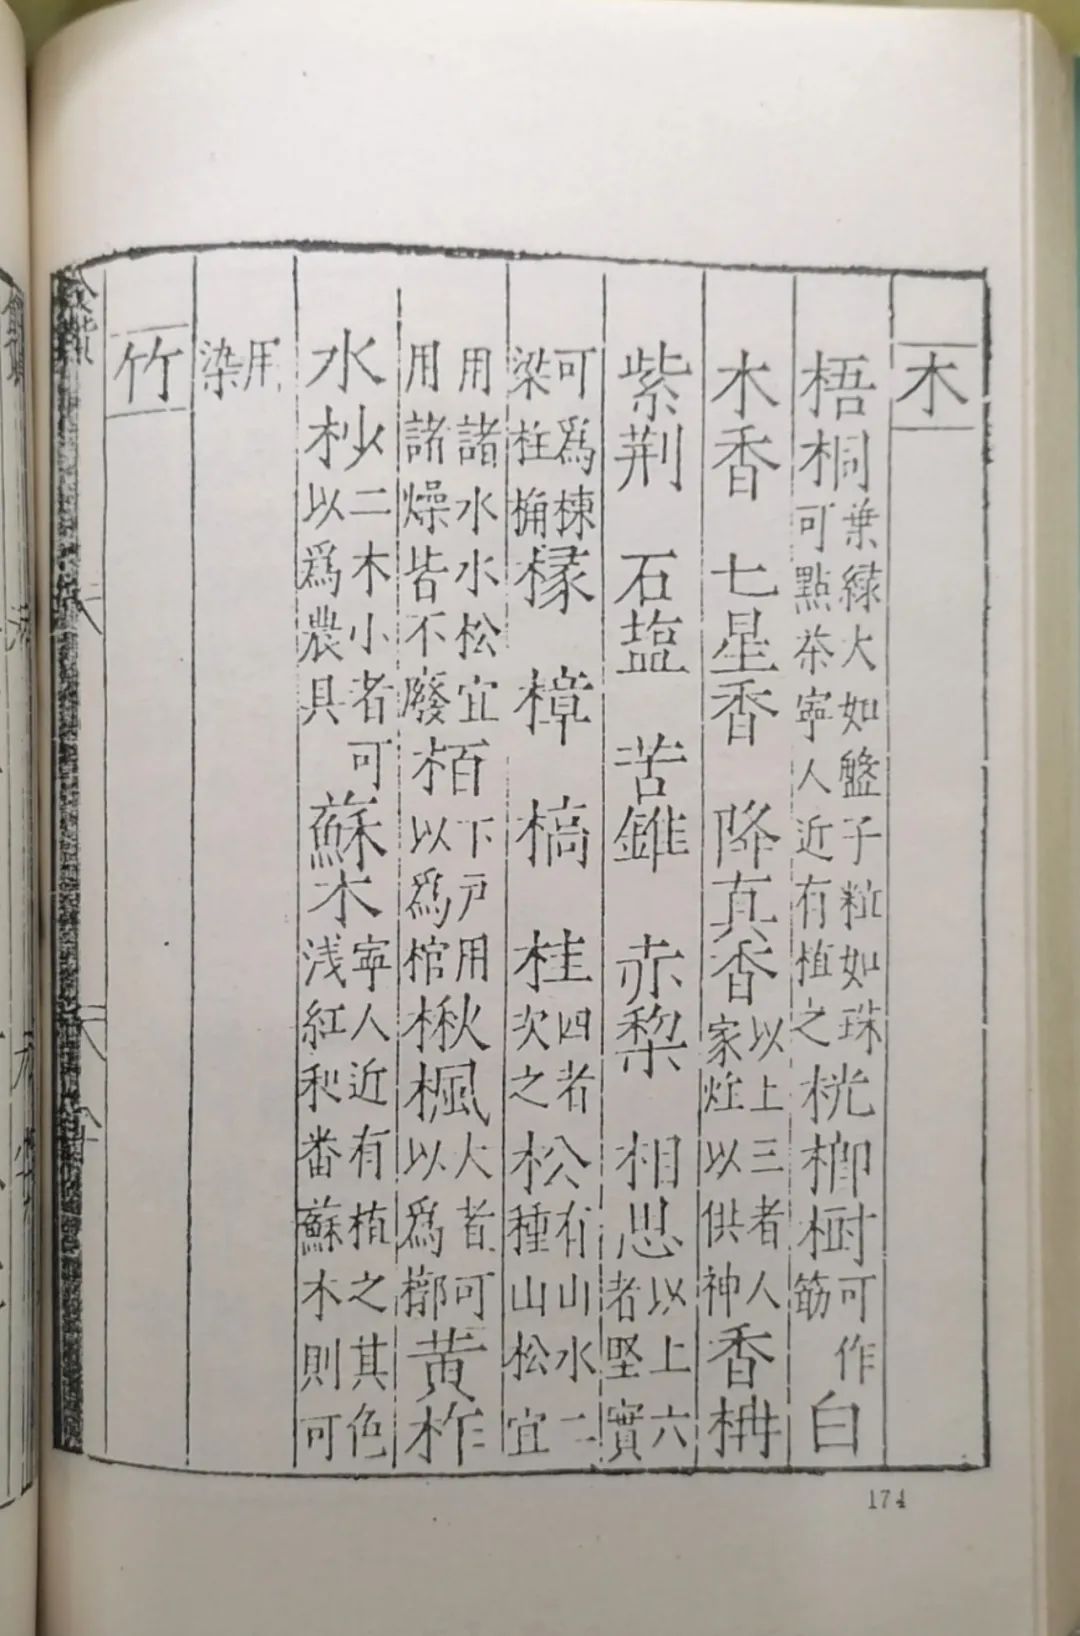 木
梧桐葉綠大如盤子粒如珠可點茶寜人近有植之桄榔樹可作筯白
木香 七星香 降真香以上三者人家炷以供神香枏
紫荆 石塩 苦錐 赤棃 相思以上六者堅實
可爲棟梁柱桷椽 樟 槁 桂四者次之松有山水二種山松宜
用諸水水松宜用諸燥皆不廢栢下戸用以爲棺楸楓大者可以爲槨黄柞
水杪二木小者可以爲農具蘇木寜人近有植之其色浅紅和番蘇木則可
用染
竹
174